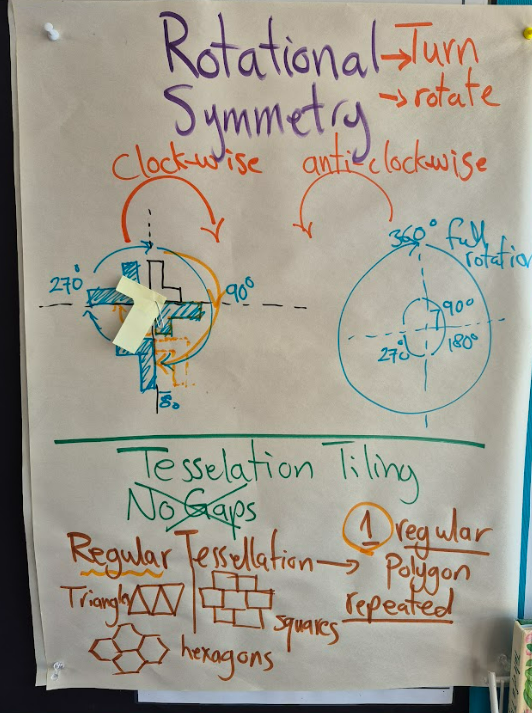 Rotational → Turn
Symmetry → rotate
clockwise
anti-clockwise
270°
90°
180
360° full
rotation
90°
270°
180°
Tesselation Tiling
No Gaps
1 regular
Polygon
repeated
Regular Tessellation →
Triangles
squares
hexagons